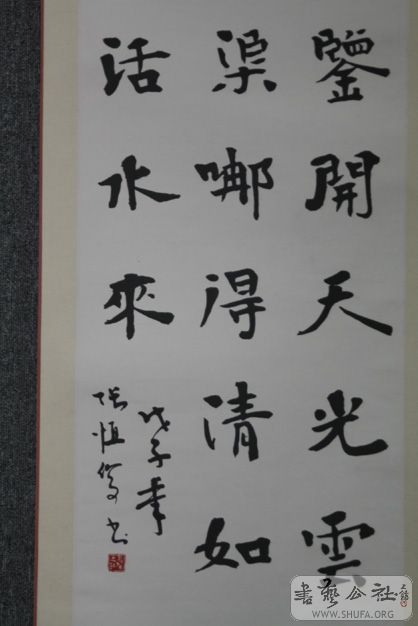 鑒開天光雲
渠哪得清如
活水來
戊子年
恒 書
書藝公社
WWW.SHUFA.ORG